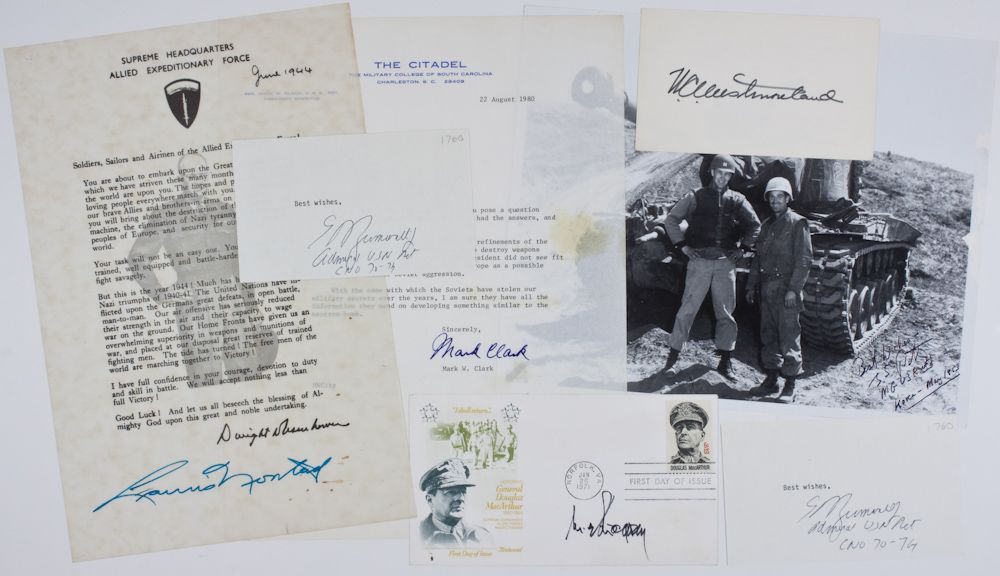 SUPREME HEADQUARTERS
ALLIED EXPEDITIONARY FORCE
June 1944
Soldiers, Sailors and Airmen of the Allied
You are about to embark upon the Great
which we have striven these many month
the world are upon you. The hopes and p
loving people everywhere march with you.
our brave Allies and brothers-in-arms on
you will bring about the destruction of
machine, the elimination of Nazi tyranny
peoples of Europe, and security for
world.
Your task will not be an easy one. You
trained, well equipped and battle-hard
fight savagely.
But this is the year 1944! Much has
Nazi triumphs of 1940-41. The United Nations have in-
flicted upon the Germans great defeats, in open battle,
man-to-man. Our air offensive has seriously reduced
their strength in the air and their capacity to wage
war on the ground. Our Home Fronts have given us an
overwhelming superiority in weapons and munitions of
war, and placed at our disposal great reserves of trained
fighting men. The tide has turned! The free men of the
world are marching together to Victory!
I have full confidence in your courage, devotion to duty
and skill in battle. We will accept nothing less than
full Victory!
Good Luck! And let us all beseech the blessing of Al-
mighty God upon this great and noble undertaking.
Dwight D Eisenhower
Lauris Norstad
THE CITADEL
THE MILITARY COLLEGE OF SOUTH CAROLINA
CHARLESTON, S. C. 29409
22 August 1980
u pose a question
had the answers, and
refinements of the
destroy weapons
sident did not see fit
ope as a possible
aggression.
with which the Soviets have stolen our
military secrets over the years, I am sure they have all the
information they need on developing something similar to the
neutron bomb.
Sincerely,
Mark Clark
Mark W. Clark
1760
Best wishes,
E R Zumwalt Jr
Admiral USN Ret
CNO 70-74
W.C. Westmoreland
Best Wishes
Korea -
"I shall return."
General
Douglas
MacArthur
First Day of Issue
NORFOLK, VA
JAN
26
1971
FIRST DAY OF ISSUE
DOUGLAS MacARTHUR
US 6c
760
Best wishes,
E R Zumwalt Jr
Admiral USN Ret
CNO 70-74